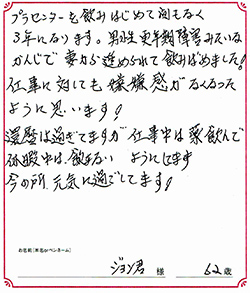 プラセンターを飲みはじめて間もなく
3年になります。男性更年期障害みたいな
かんじで妻から進められて飲みはじめました!
仕事に対しても嫌嫌感がなくなった
ように思います!
還暦は過ぎてますが仕事中は薬飲んで
休暇中は、飲まない ようにしてます
今の所、元気に過ごしてます!
お名前(本名orペンネーム)
ジョン君 様 62歳